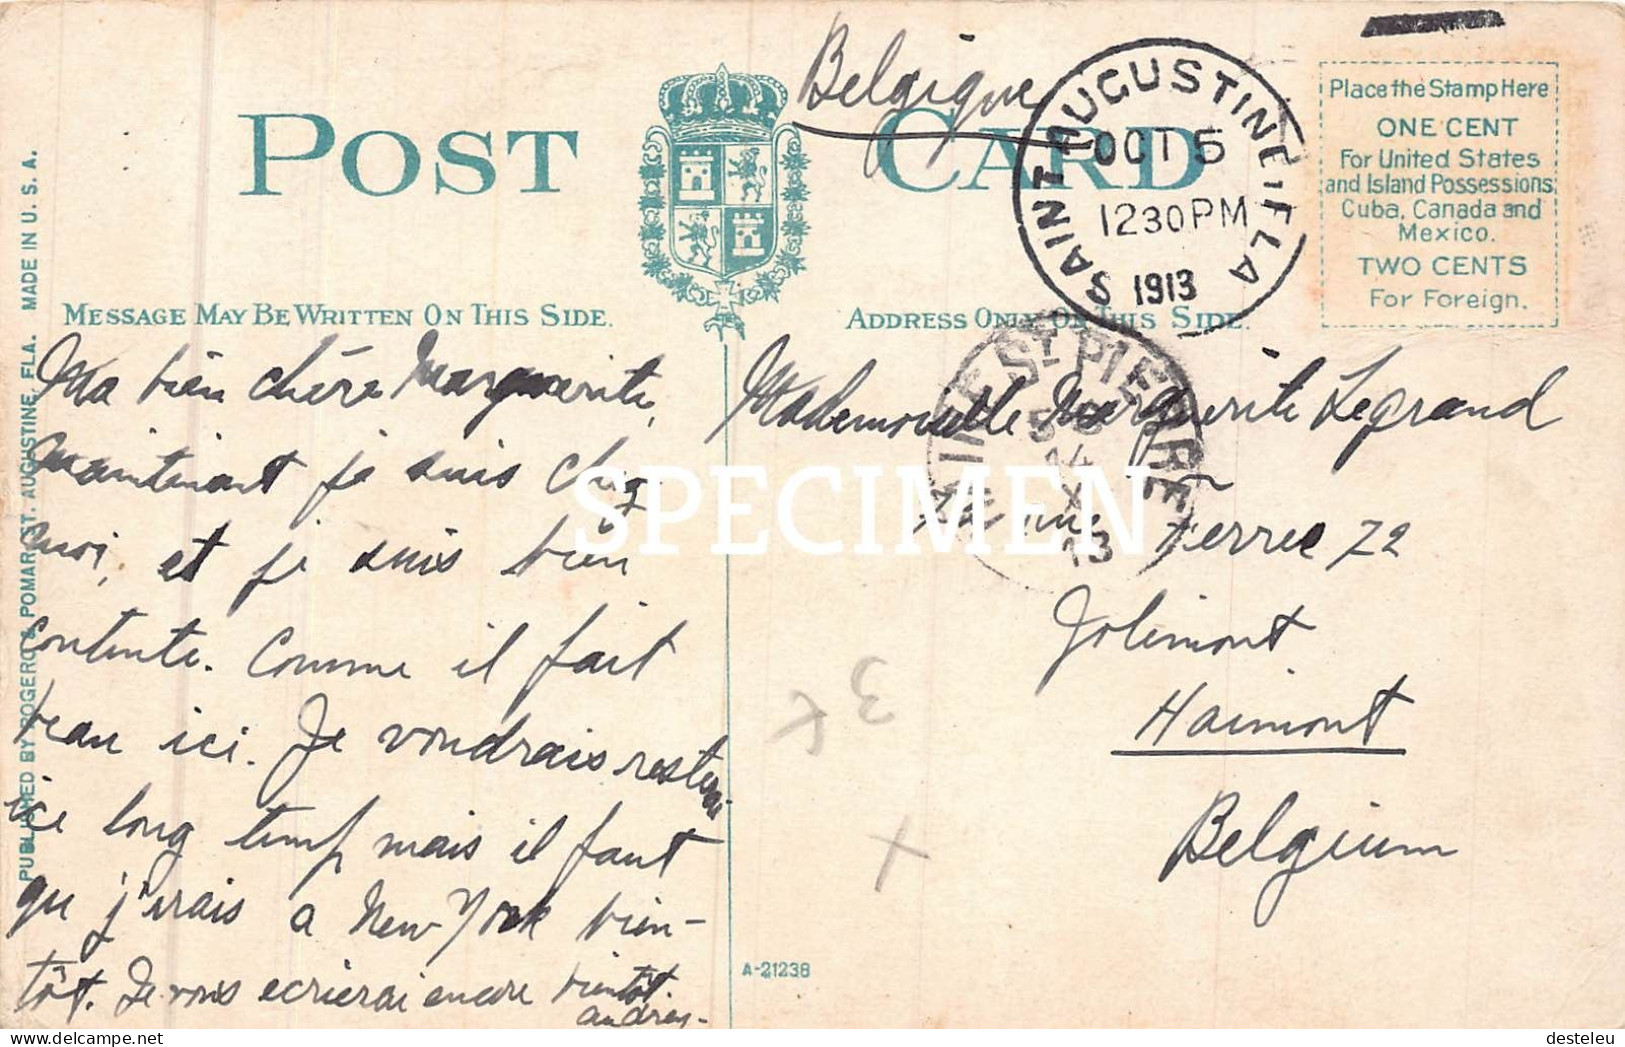 Belgique
POST CARD
SAINT AUGUSTINE, FLA.
OCT 5
1230 PM
1913
Place the Stamp Here
ONE CENT
For United States
and Island Possessions,
Cuba, Canada and
Mexico.
TWO CENTS
For Foreign.
MESSAGE MAY BE WRITTEN ON THIS SIDE.
ADDRESS ONLY ON THIS SIDE.
PUBLISHED BY ROGERO & POMAR, ST. AUGUSTINE, FLA. MADE IN U. S. A.
Ma bien chère Marguerite,
maintenant je suis chez
moi, et je suis bien
contente. Comme il fait
beau ici. Je voudrais rester
ici long temps mais il faut
que j'irais a New York bien-
tôt. Je vous ecrierai encore bientôt.
Andrey-
ST PIERRE
14
X
13
Mademoiselle Marguerite Legrand
72 rue Ferrer 72
Jolimont
Haimont
Belgium
3
A-21238
SPECIMEN
delcampe.net
desteleu